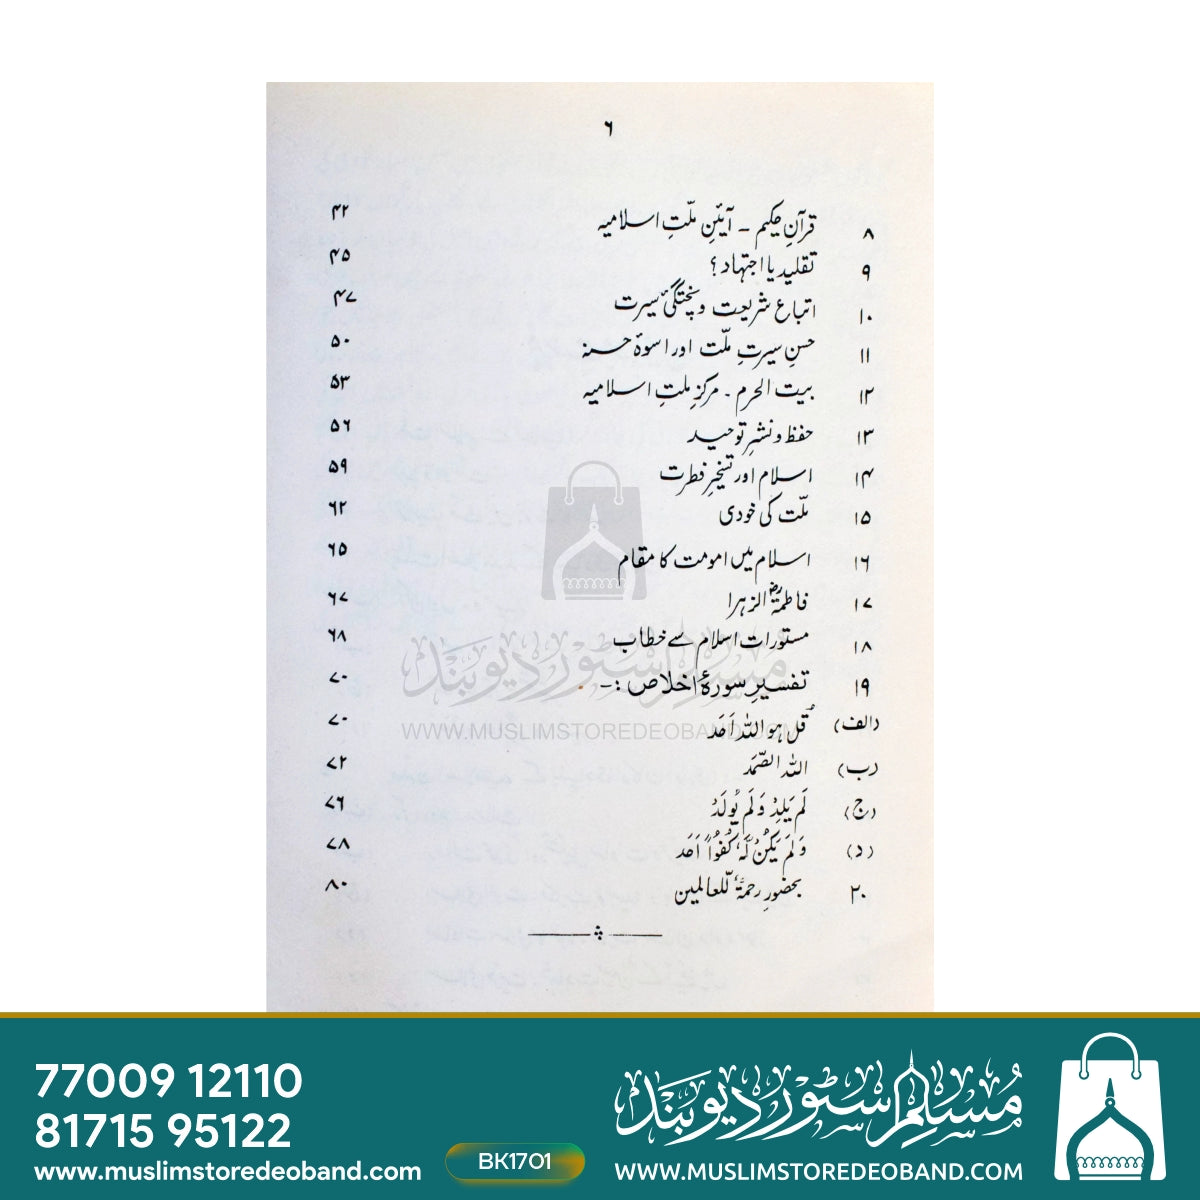 ۶
۸ قرآنِ حکیم ۔ آئینِ ملّتِ اسلامیہ ۴۲
۹ تقلید یا اجتہاد؟ ۴۵
۱۰ اتباع شریعت و پختگیٔ سیرت ۴۷
۱۱ حسنِ سیرتِ ملّت اور اسوۂ حسنہ ۵۰
۱۲ بیت الحرم ۔ مرکزِ ملتِ اسلامیہ ۵۳
۱۳ حفظ و نشرِ توحید ۵۶
۱۴ اسلام اور تسخیرِ فطرت ۵۹
۱۵ ملّت کی خودی ۶۲
۱۶ اسلام میں امومت کا مقام ۶۵
۱۷ فاطمۃؓ الزہرا ۶۷
۱۸ مستورات اسلام سے خطاب ۶۸
۱۹ تفسیرِ سورۂ اخلاص :۔ ۷۰
(الف) قُل ہو اللہ اَحَد ۷۰
(ب) اللہ الصّمَد ۷۲
(ج) لَم یَلِدْ وَلَم یُولَدْ ۷۶
(د) وَلَم یَکُنْ لَّہٗ کُفُواً اَحَد ۷۸
۲۰ بحضورِ رحمۃٌ لّلعالمین ۸۰
مسلم سٹور دیوبند
WWW.MUSLIMSTOREDEOBAND.COM
77009 12110
81715 95122
www.muslimstoredeoband.com
BK1701
مُسلم سٹور دیوبند
WWW.MUSLIMSTOREDEOBAND.COM